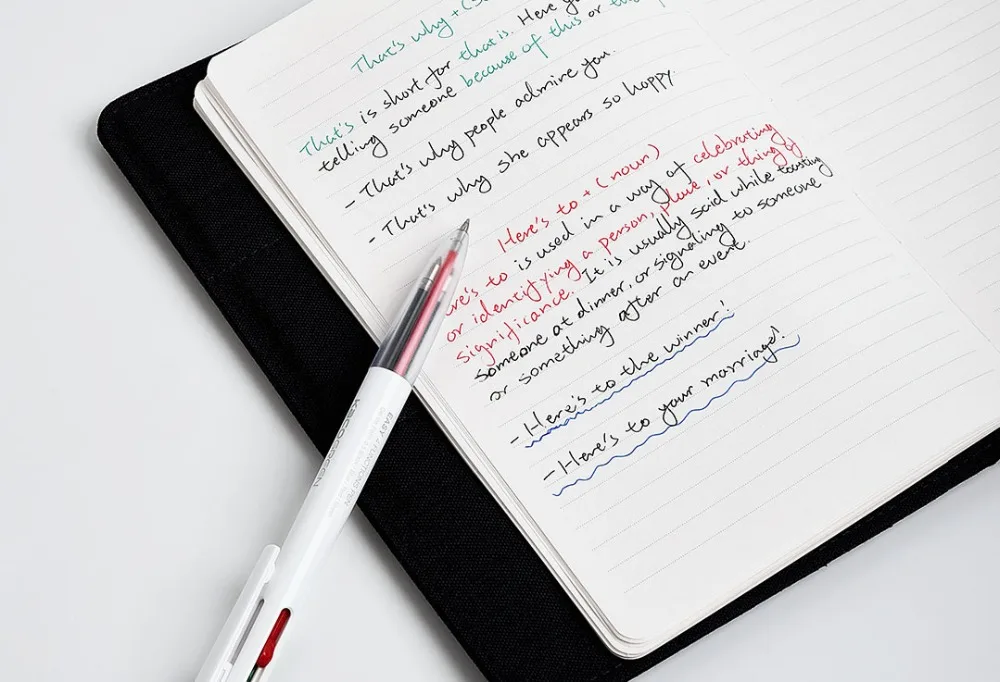 That's why + (S
That's is short for that is. Here you
telling someone because of this or
- That's why people admire you.
- That's why she appears so happy.
Here's to + (noun)
ere's to is used in a way of celebrating
or identifying a person, place, or thing of
significance. It is usually said while toasting
someone at dinner, or signaling to someone
or something after an event.
- Here's to the winner!
- Here's to your marriage!
KACOGREEN
EASY